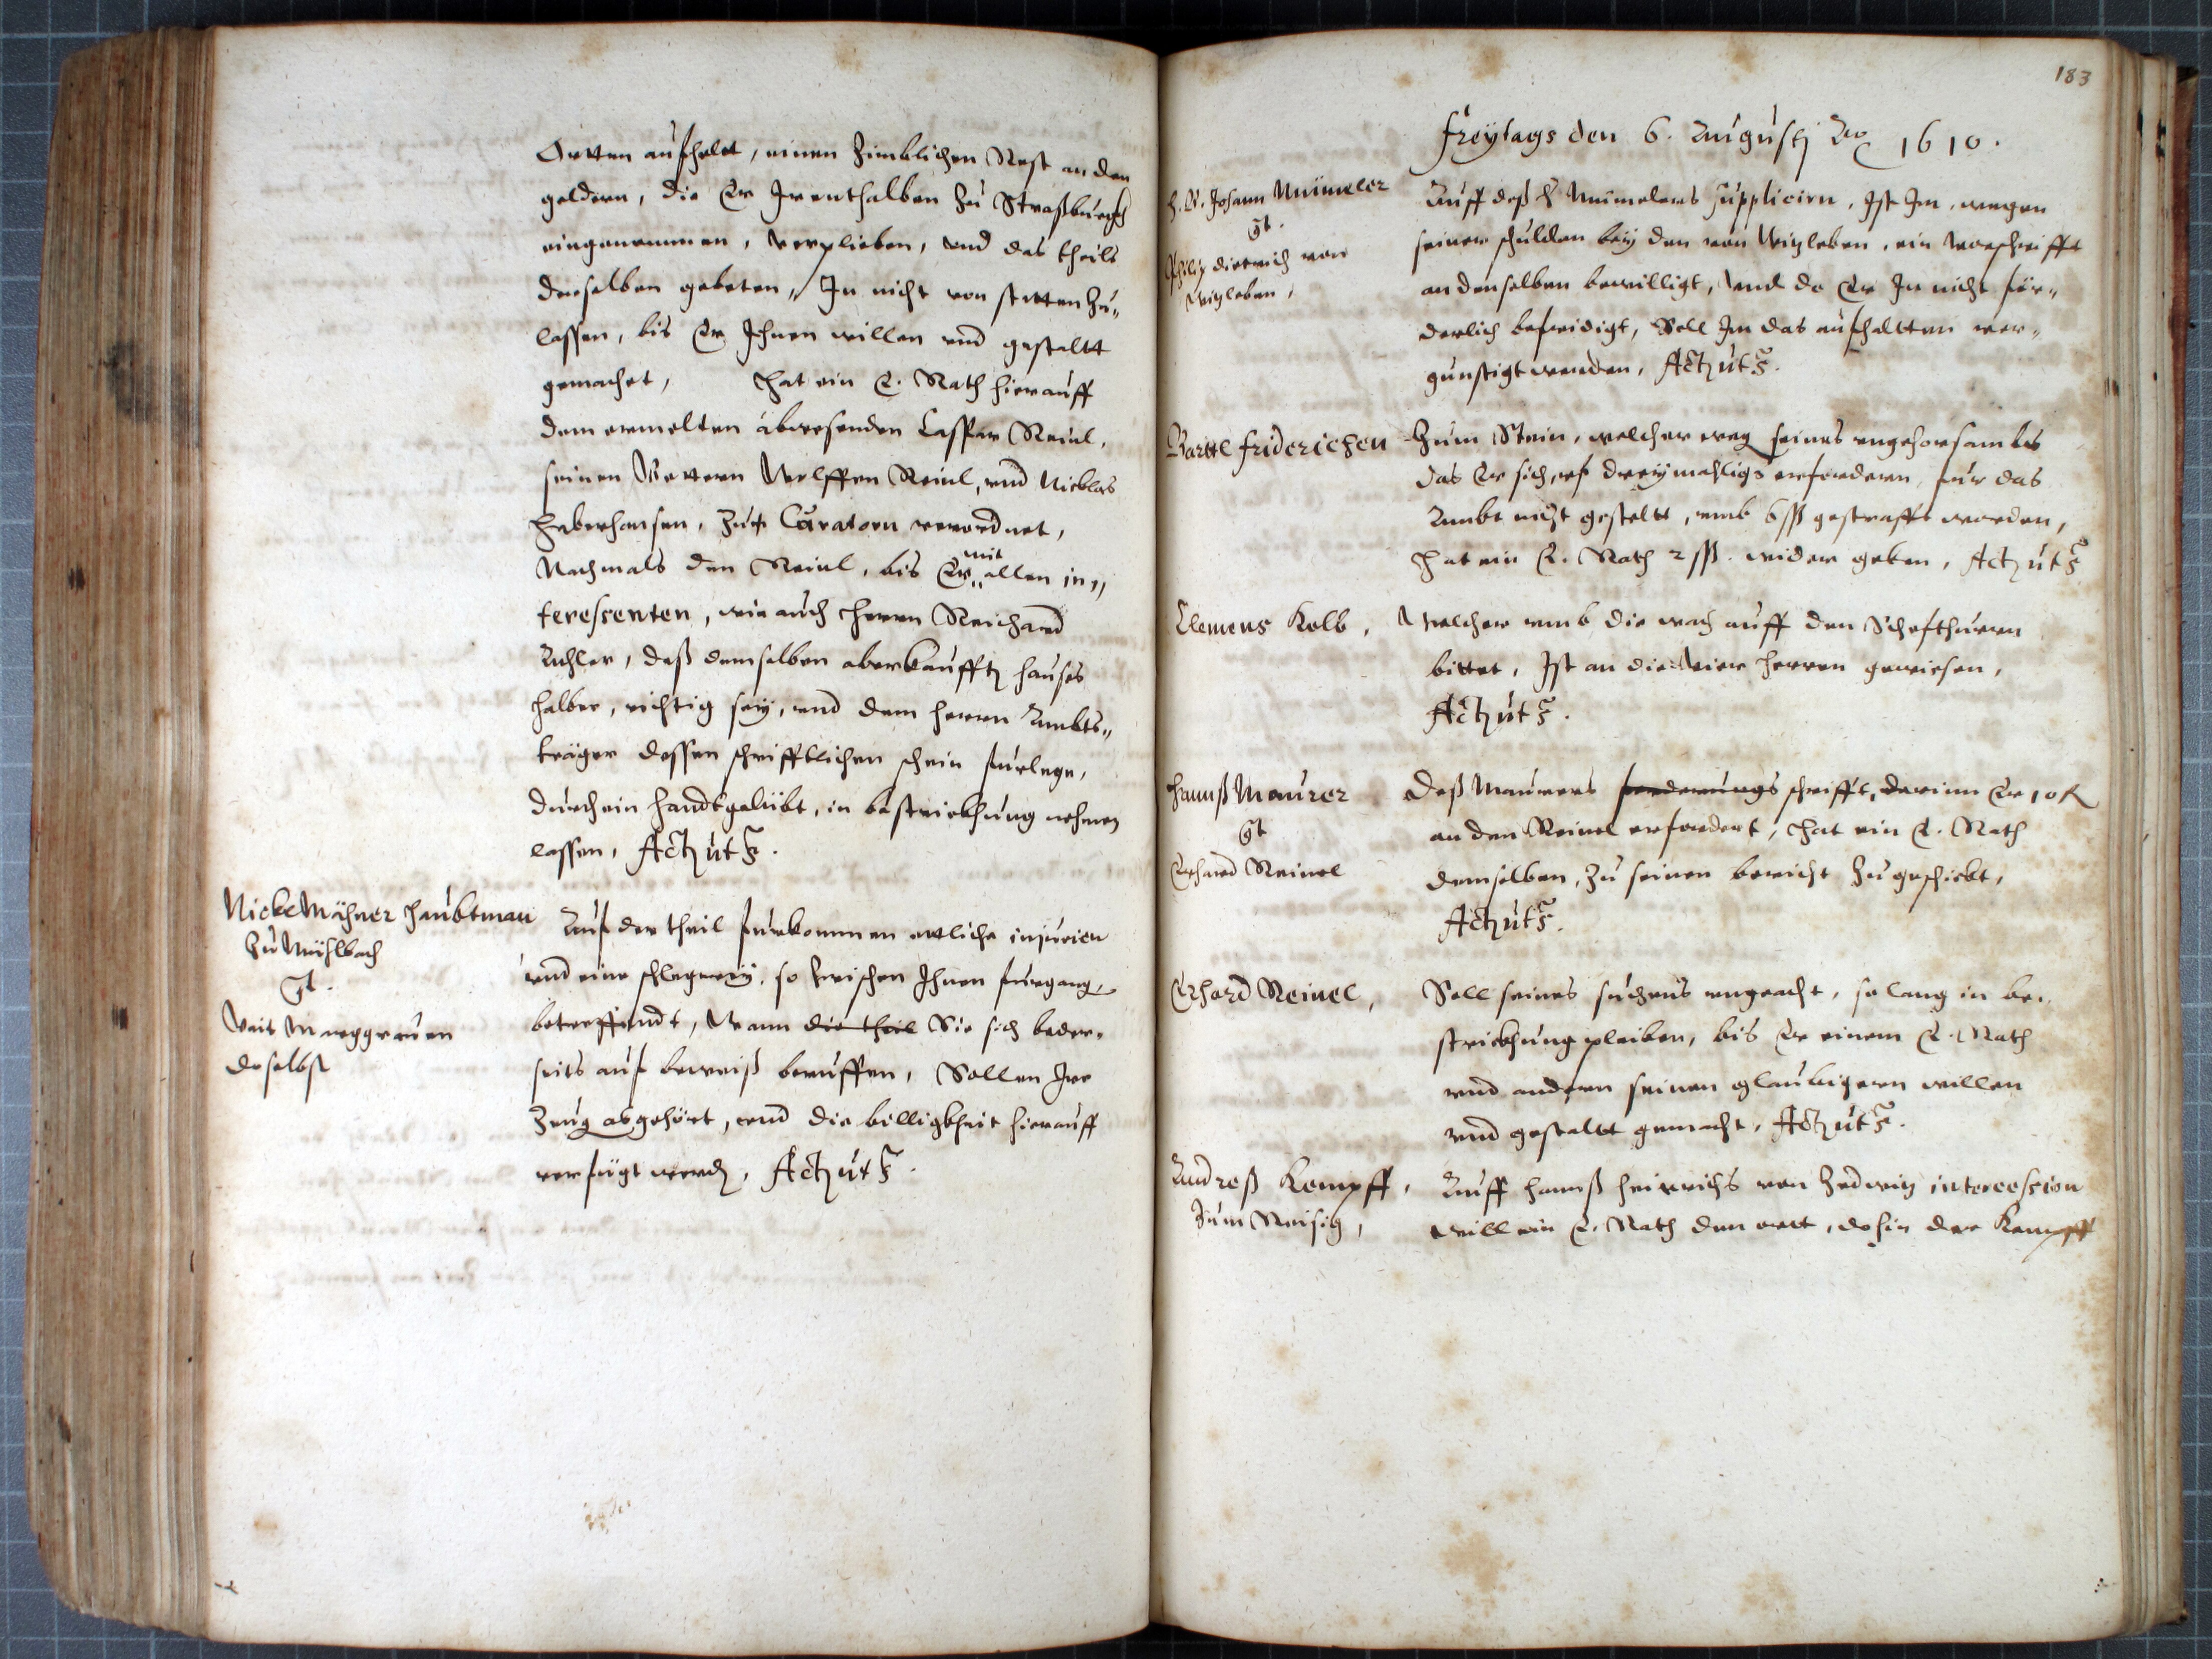 Orten aufhelt, einen zimblichen Rest an den
geldern, die Er Irenthalben zu Straßburgkh
eingenommen, verplieben, und das theils
derselben gebeten, In nicht von statten zu„
lassen, bis Er Ihnen willen und gestaltt
gemachet, Hat ein E. Rath hierauff
dem ermelten abwesenden Casspar Reinl,
seinen Vettern Wolffen Reinl, und Nicklas
Haberhansen, zu Curatorn verordnet,
Nachmals den Reinl, bis Er mit allen in„
teressenten, wie auch Herrn Reichard
Achler, deß demselben aberkaufftn hauses
halber, richtig sey, und dem herrn Ambts„
träger dessen schrifftlichen schein furlege,
durch ein handtgelübt, in bestrickhung nehmen
lassen, Actz ut s.
Nickl Mähner Haubtman
zu Mühlbach
Gt.
Veit Marggrauen
doselbst
Auf der theil furkommen ettliche injurien
und eine schlegerey, so zwischen Ihnen furgang,
betreffendt, Wann die theil Sie sich beder„
seits auf beweiß beruffen, Sollen Ire
Zeug abgehört, und die billigkheit hierauff
verfügt werdn, Actz ut s.
183
Freytags den 6. Augustj Ao 1610.
H. D. Johann Mümeler
Gt.
Philip dietrich von
Wizleben,
Auff deß H Mümelers supplicirn, Ist Im, wegen
seiner schulden bey den von Wizleben, ein Vorschrifft
an denselben bewilligt, Und do Er In nicht för„
derlich befridigt, Soll Im das aufhaltten ver„
gunstigt werden, Actz ut s.
Barttl Friderichen
Zum Stein, welcher weg seines ungehorsambs
das Er sich, uf dreymahligs erfordern, für das
Ambt nicht gestelt, umb 6 ß gestrafft worden,
Hat ein E. Rath 2 ß. wider geben, Actz ut s
Clemens Kolb,
Welcher umb die wach auff den Schefthurrn
bittet, Ist an die Vier herren gewiesen,
Actz ut s.
Hannß Maurer
Gt
Erhard Reinel
Deß Maurers forderungs schrifft, darinn Er 10 fl
an den Reinel erfordert, Hat ein E. Rath
demselben, zu seinen bericht zugeschickt,
Actz ut s.
Erhard Reinel,
Soll seines suchens ungeacht, so lang in be„
strickhung pleiben, bis Er einem E. Rath
und andern seinen glaubigern willen
und gestaltt gemacht, Actz ut s.
Andreß Kempff,
Zum Reisig,
Auff Hannß Heinrichs von Zedwiz intercession
will ein E. Rath den ortt, dohin der Kempff